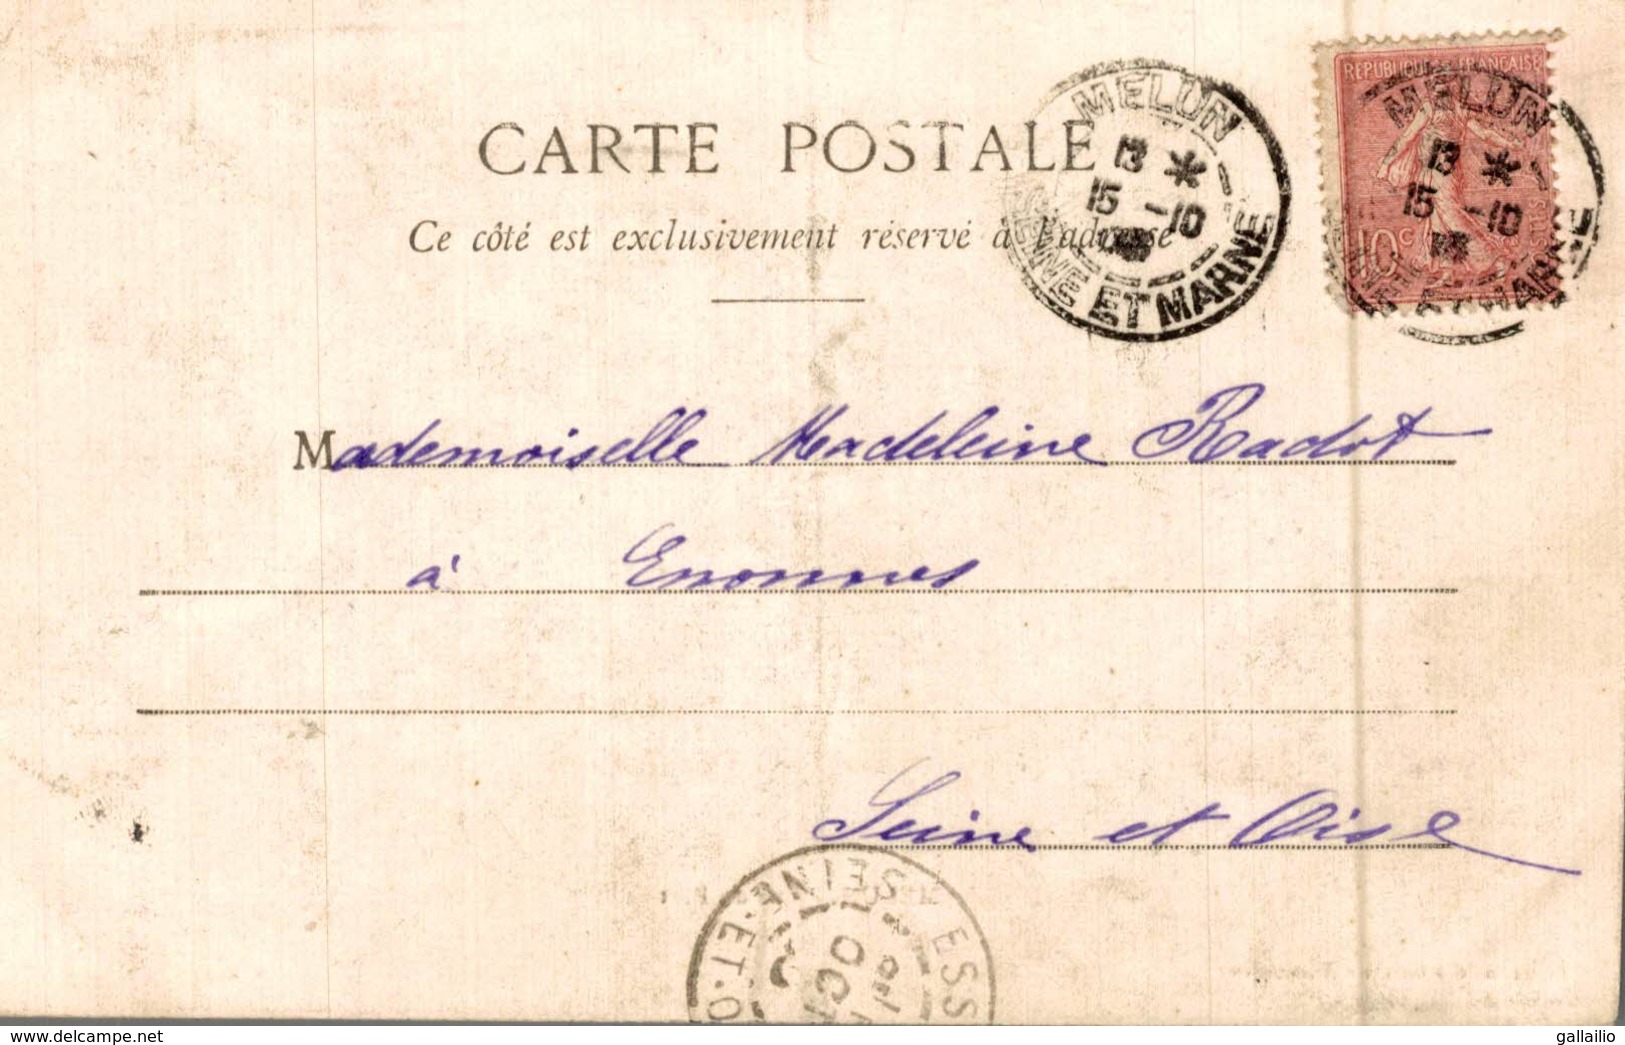 CARTE POSTALE
Ce côté est exclusivement réservé à l'adresse
MELUN
13 *
15 -10
SEINE ET MARNE
REPUBLIQUE FRANÇAISE
MELUN
13 *
15 -10
10 c
POSTES
Mademoiselle Madeleine Radot
à Essonnes
Seine et Oise
ESS
SEINE-ET-O
OCT
delcampe.net
gallailio